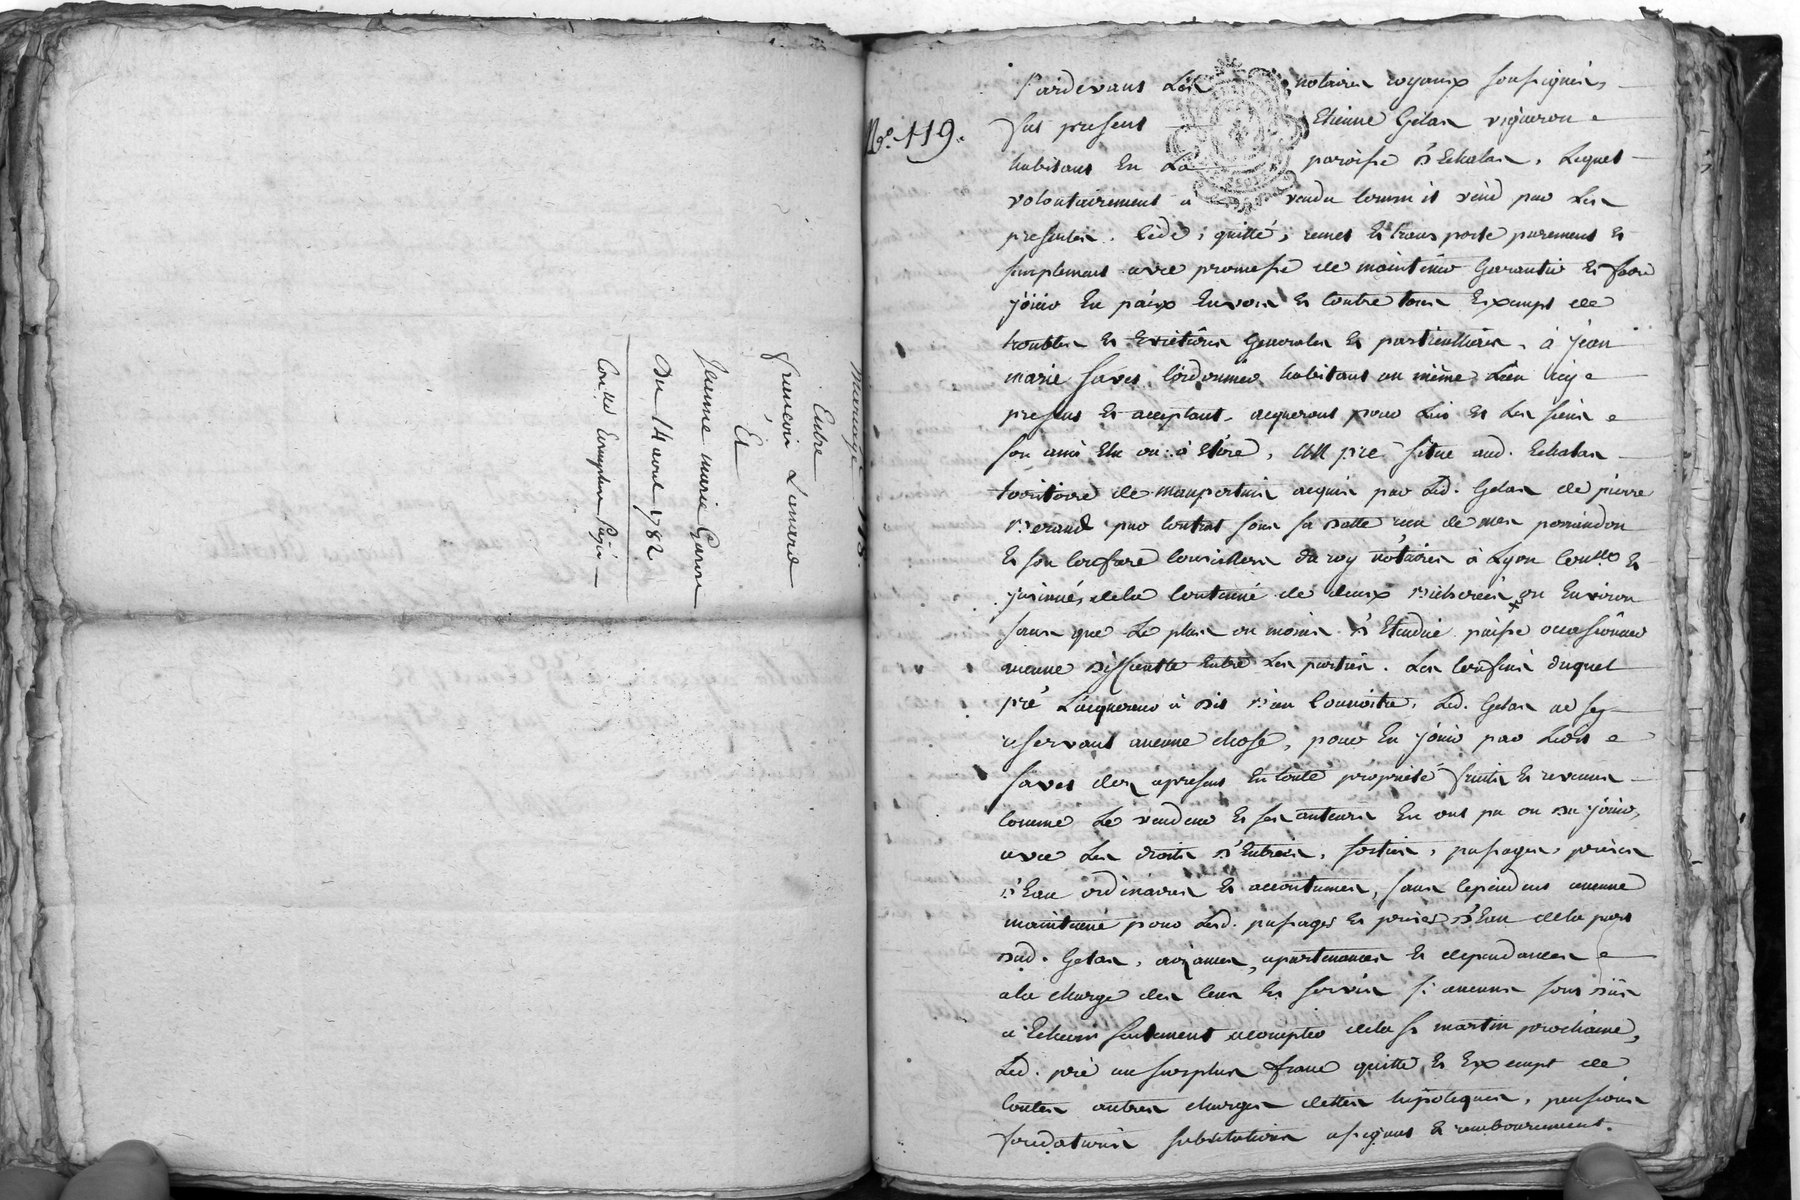 Mariage
Entre
françois Lamarie
Et
Jeanne marie Garon
Du 14 avril 1782
Con.lle Exempture Payé
N.o 119.
Pardevant Les notaires royaux soussignés
fut present Etienne Gelas vigneron
habitant en La paroisse d'Echalas, Lequel
volontairement a vendu comme il vend par Les
presentes, cède, quitte, remet et transporte purement et
simplement avec promesse de maintenir Garantir et faire
joüir En paix Envers et Contre tous Exempt de
troubles et Evictions Generales et particullieres, à jean
marie favet Cordonnier habitant au même Lieu icy
present et acceptant, acquerant pour Lui et Les siens
son ami Elu ou à Elire, Un pré situé aud. Echalas
territoire de maupertuis acquis par Led. Gelas de pierre
par Contrat sous sa datte reçu de mes perrindon
Et son Confrere Conseillers du roy notaires à Lyon Con.llé et
jnsinué, de la Contenue de deux bicherées ou Environ
sans que Le plus ou moins d'Etendue puisse occasionner
aucune difficulté Entre Les parties. Les Confins duquel
pré L'acquereur a dit bien Connoitre, Led. Gelas ne sey
reservant aucune chose, pour En joüir par Ledit
favet des apresent En toute propriété fruits et revenus
Comme Le vendeur et ses auteurs En ont pu ou du joüir,
avec Les droits d'Entrées, sorties, passages, prises
d'Eau ordinaires et accoutumés, sans Cependant aucune
maintenue pour Lesd. passages et prises d'Eau de la part
dud. Gelas, aizances, apartenances et dependances
a la charge des Cens et servis si aucuns sont dûs
a Echeoir seulement acompter de la st martin prochaine,
Led. pré au surplus franc quitte et Exempt de
toutes autres charges dettes hipoteques, pensions
fondations substitutions asignats et remboursement.